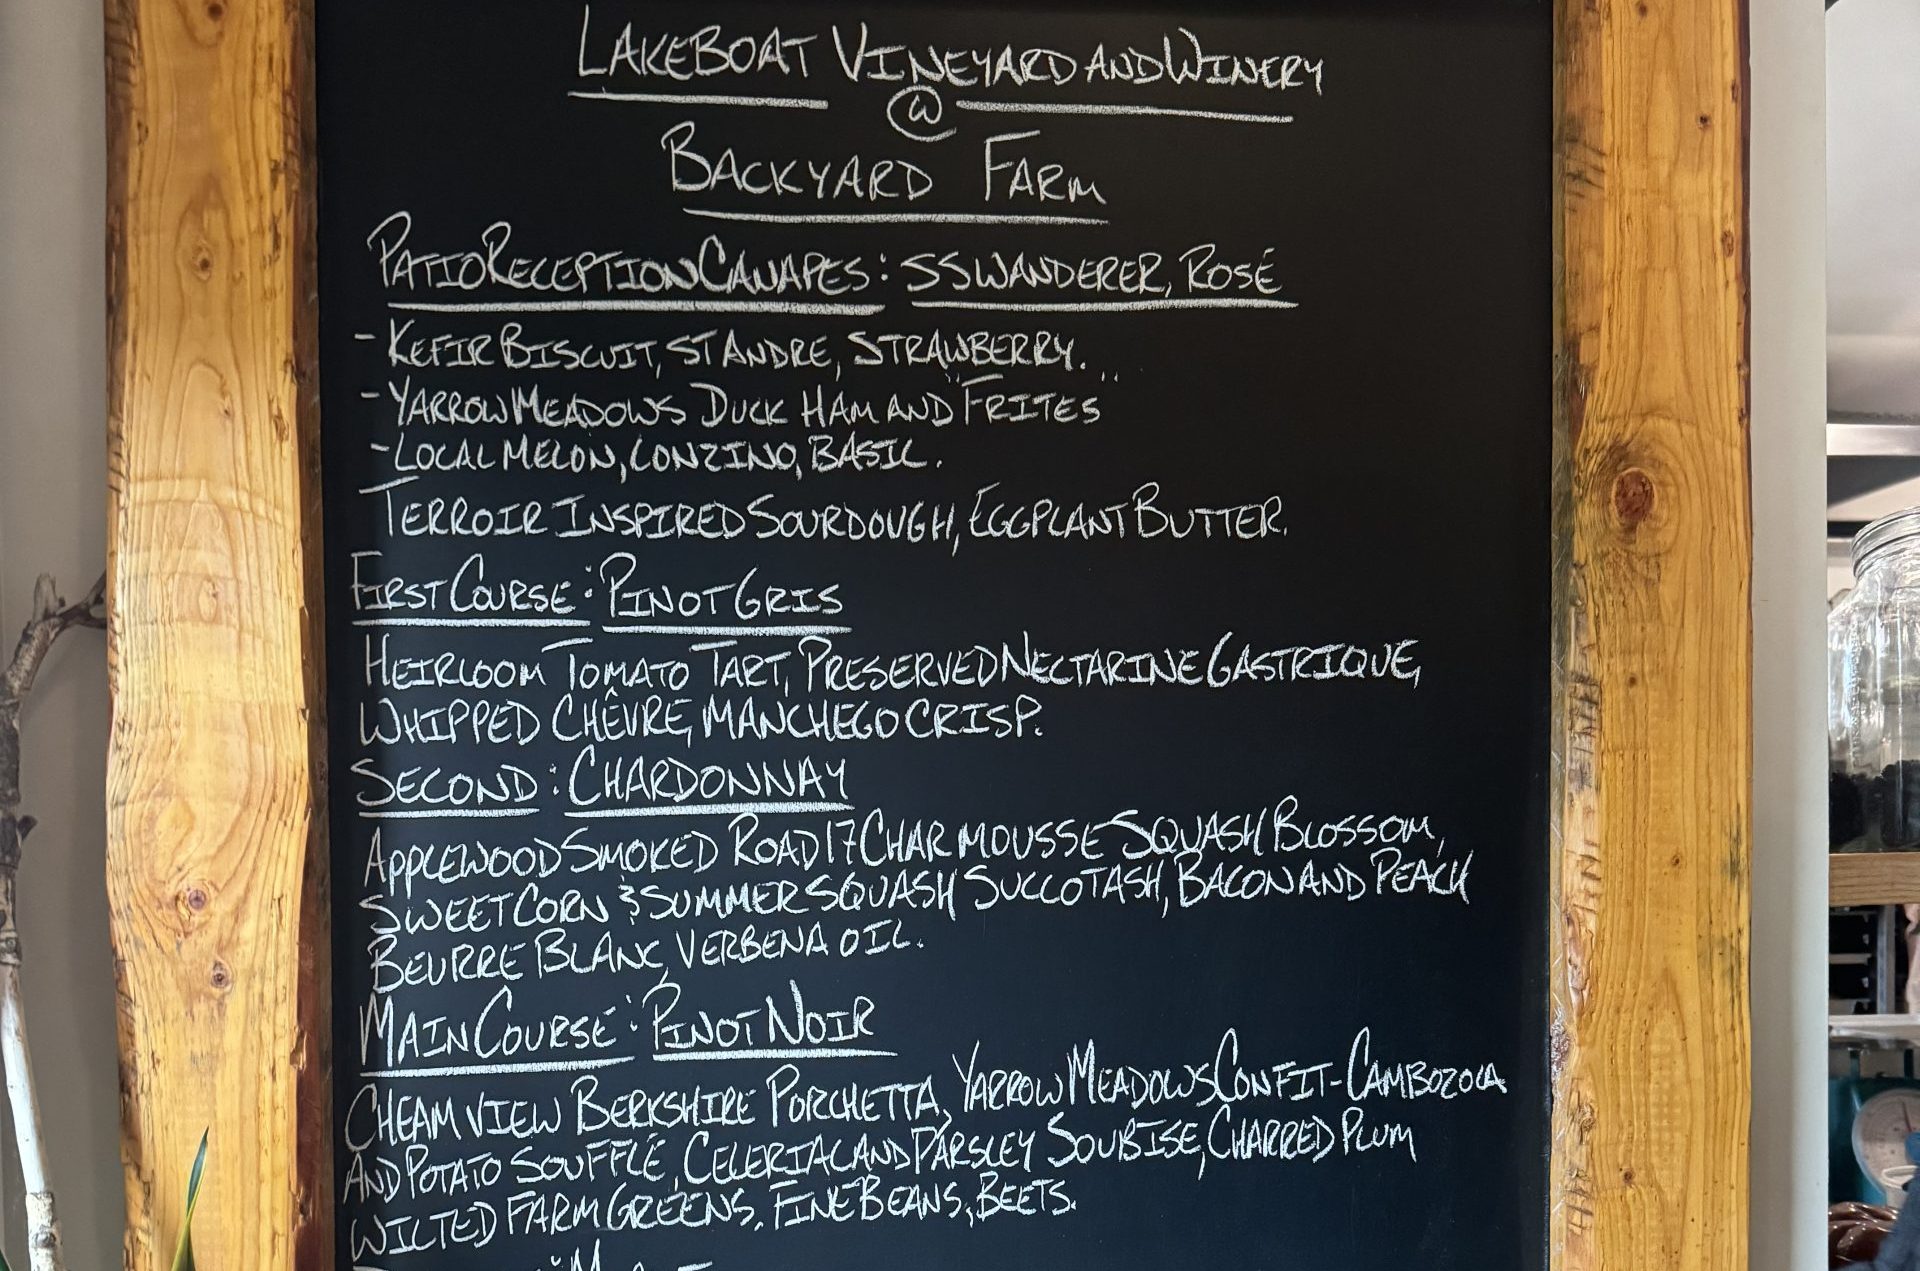 LAKEBOAT VINEYARD AND WINERY
@
BACKYARD FARM
PATIO RECEPTION CANAPES : SS WANDERER, ROSÉ
- KEFIR BISCUIT, ST ANDRE, STRAWBERRY.
- YARROW MEADOWS DUCK HAM AND "FRITES"
- LOCAL MELON, LONZINO, BASIL.
TERROIR INSPIRED SOURDOUGH, EGGPLANT BUTTER.
FIRST COURSE : PINOT GRIS
HEIRLOOM TOMATO TART, PRESERVED NECTARINE GASTRIQUE,
WHIPPED CHÊVRE, MANCHEGO CRISP.
SECOND : CHARDONNAY
APPLEWOOD SMOKED ROAD 17 CHAR MOUSSE SQUASH BLOSSOM,
SWEET CORN & SUMMER SQUASH SUCCOTASH, BACON AND PEACH
BEURRE BLANC, VERBENA OIL.
MAIN COURSE : PINOT NOIR
CHEAM VIEW BERKSHIRE PORCHETTA, YARROW MEADOWS CONFIT-CAMBOZOLA
AND POTATO SOUFFLÉ, CELERIAC AND PARSLEY SOUBISE, CHARRED PLUM
WILTED FARM GREENS, FINE BEANS, BEETS.